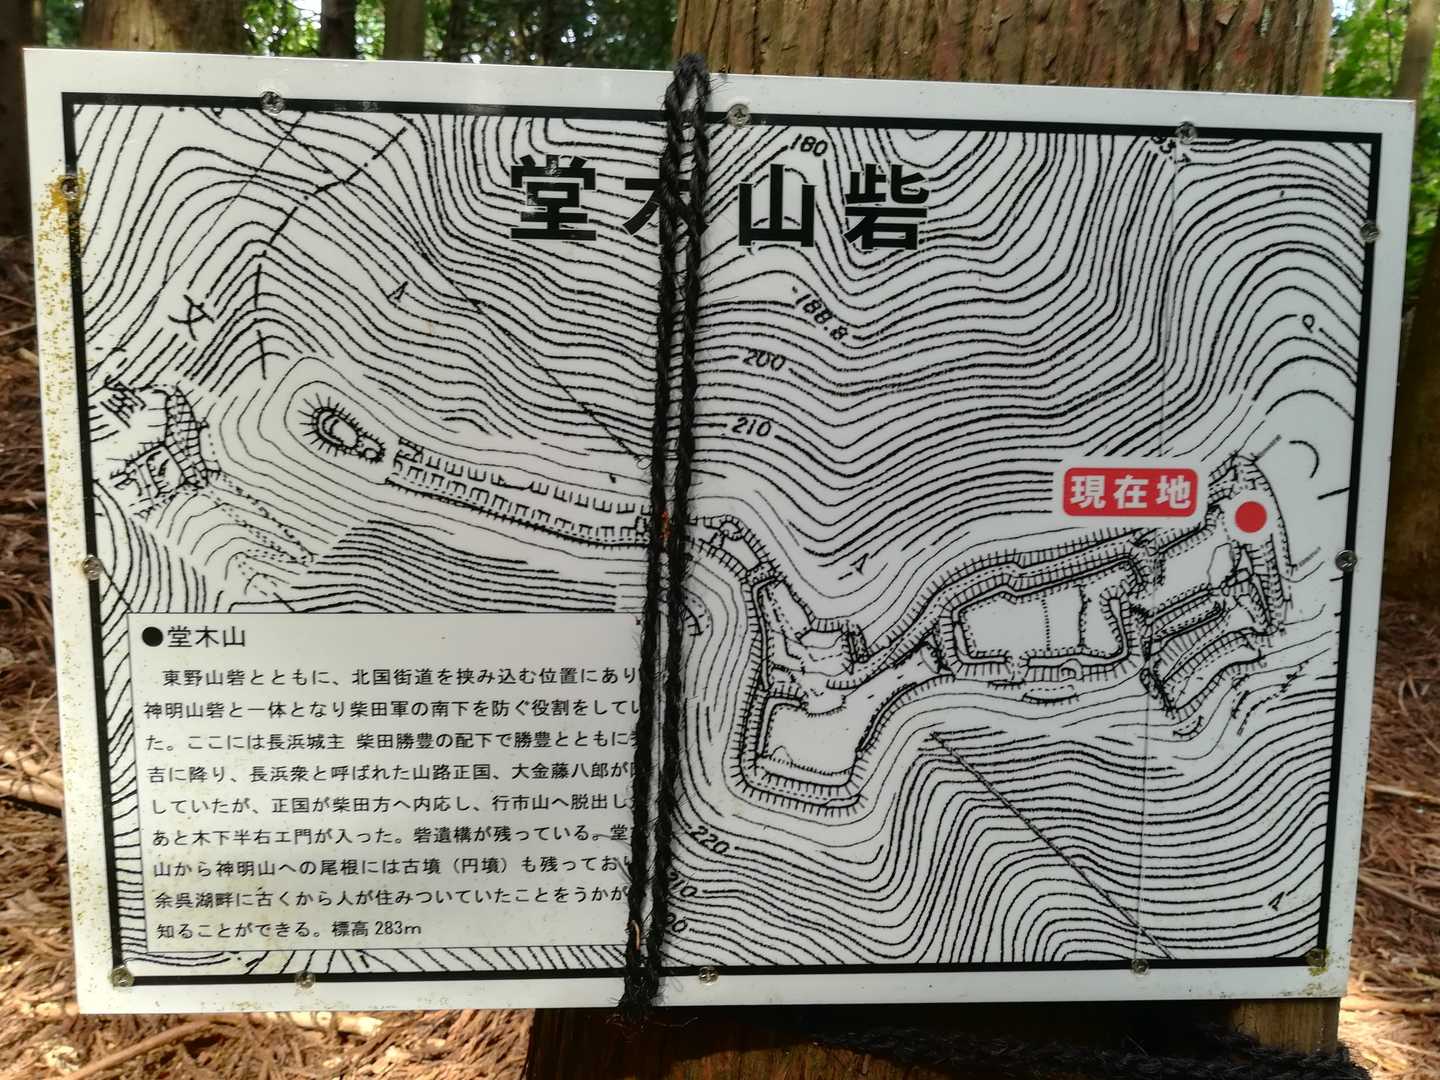 堂木山砦
180
188.8
200
210
現在地
●堂木山
東野山砦とともに、北国街道を挟み込む位置にあり
神明山砦と一体となり柴田軍の南下を防ぐ役割をしてい
た。ここには長浜城主 柴田勝豊の配下で勝豊とともに
吉に降り、長浜衆と呼ばれた山路正国、大金藤八郎が
していたが、正国が柴田方へ内応し、行市山へ脱出し
あと木下半右エ門が入った。砦遺構が残っている。堂
山から神明山への尾根には古墳（円墳）も残っており
余呉湖畔に古くから人が住みついていたことをうかが
知ることができる。標高283m
220
210